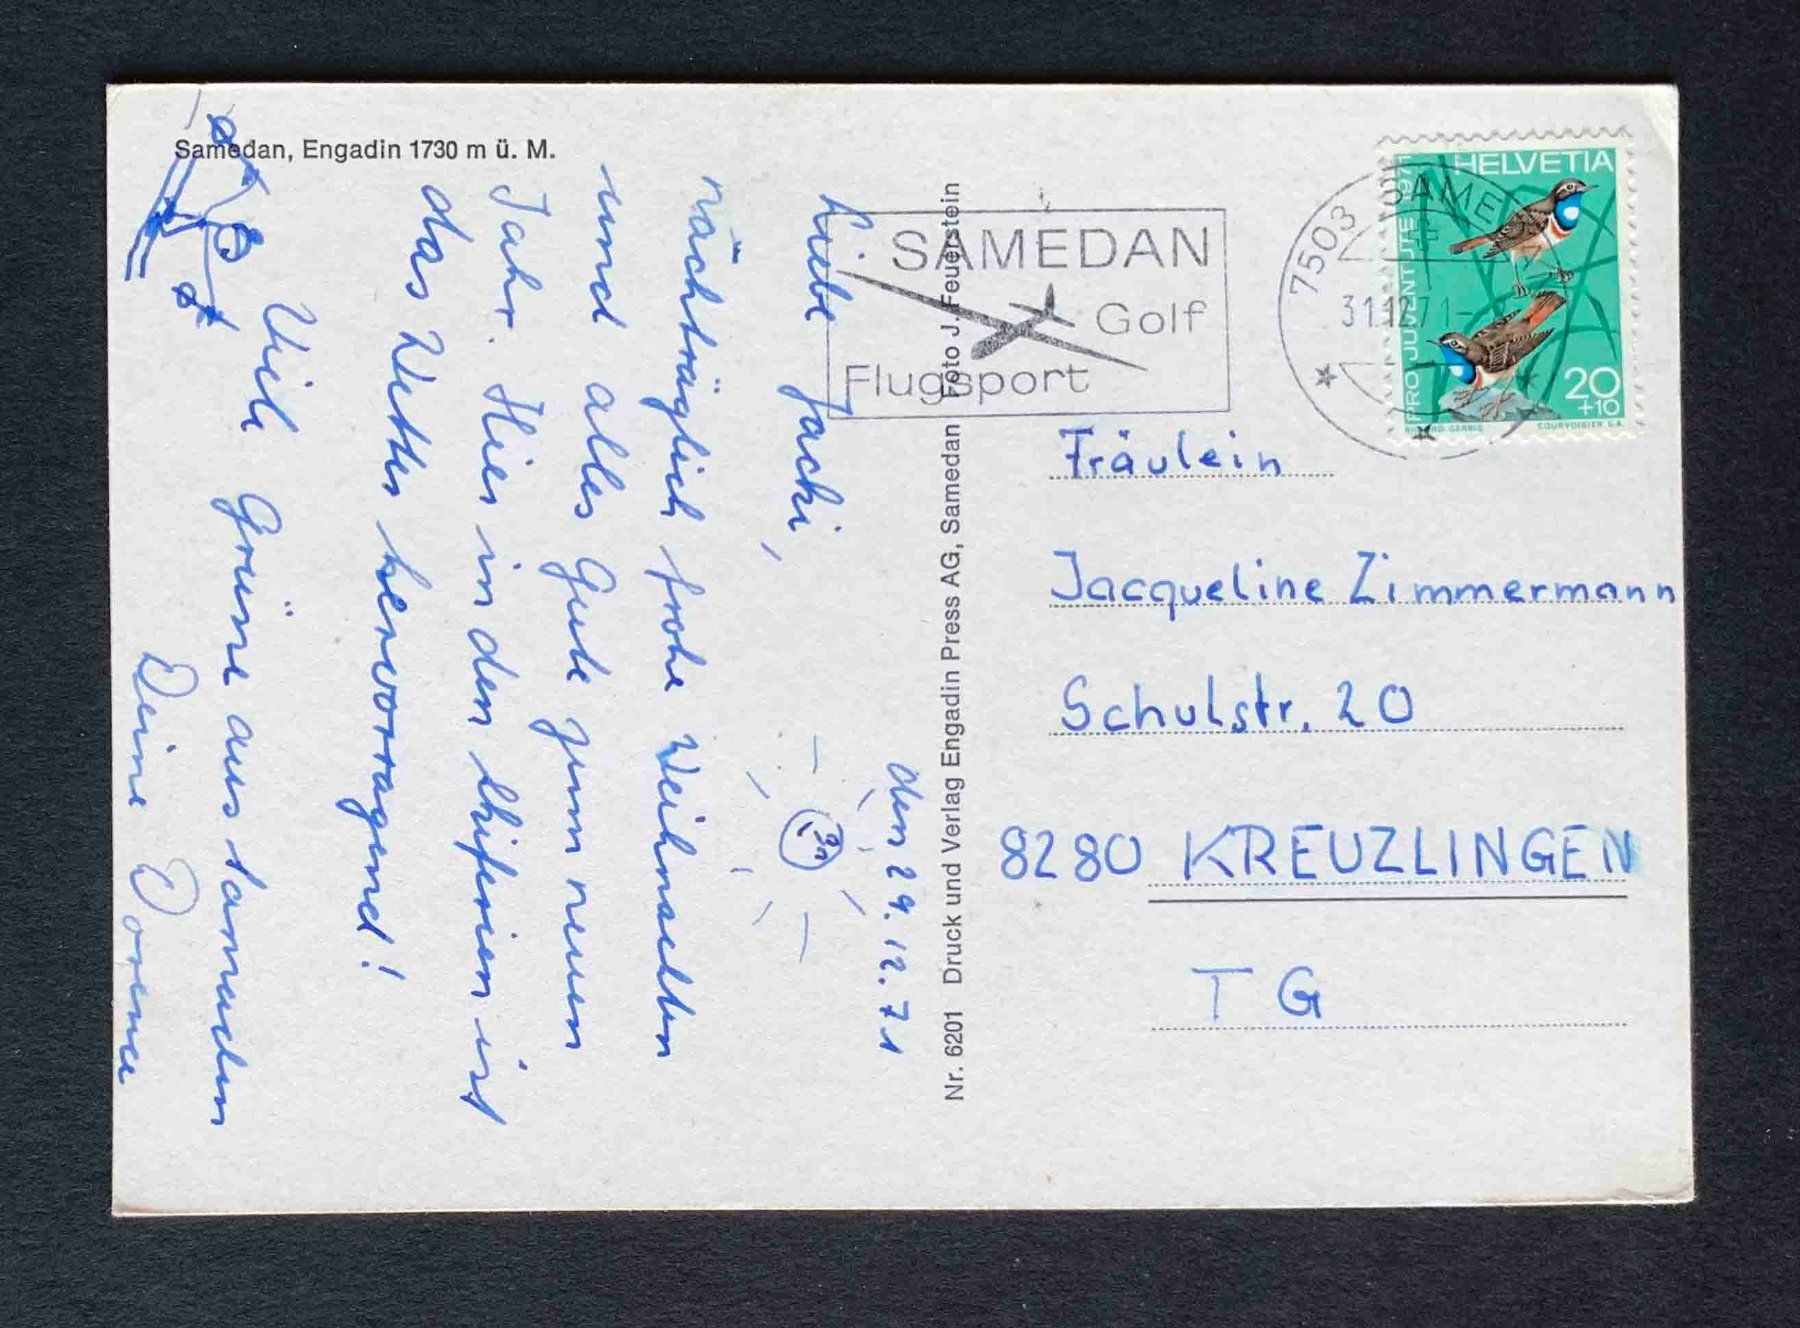 Samedan, Engadin 1730 m ü. M.
den 29.12.71
Liebe Jacki,
nächträglich frohe Weihnachten
und alles Gute zum neuen
Jahr. Hier in den Skiferien ist
das Wetter hervorragend!
Viele Grüsse aus
Deine
Nr. 6201 Druck und Verlag Engadin Press AG, Samedan Foto J. Feuerstein
SAMEDAN
Golf
Flugsport
7503 SAMEDAN
31.12.71
HELVETIA
PRO JUVENTUTE 1971
20
+10
COURVOISIER S.A.
Fräulein
Jacqueline Zimmermann
Schulstr. 20
8280 KREUZLINGEN
TG